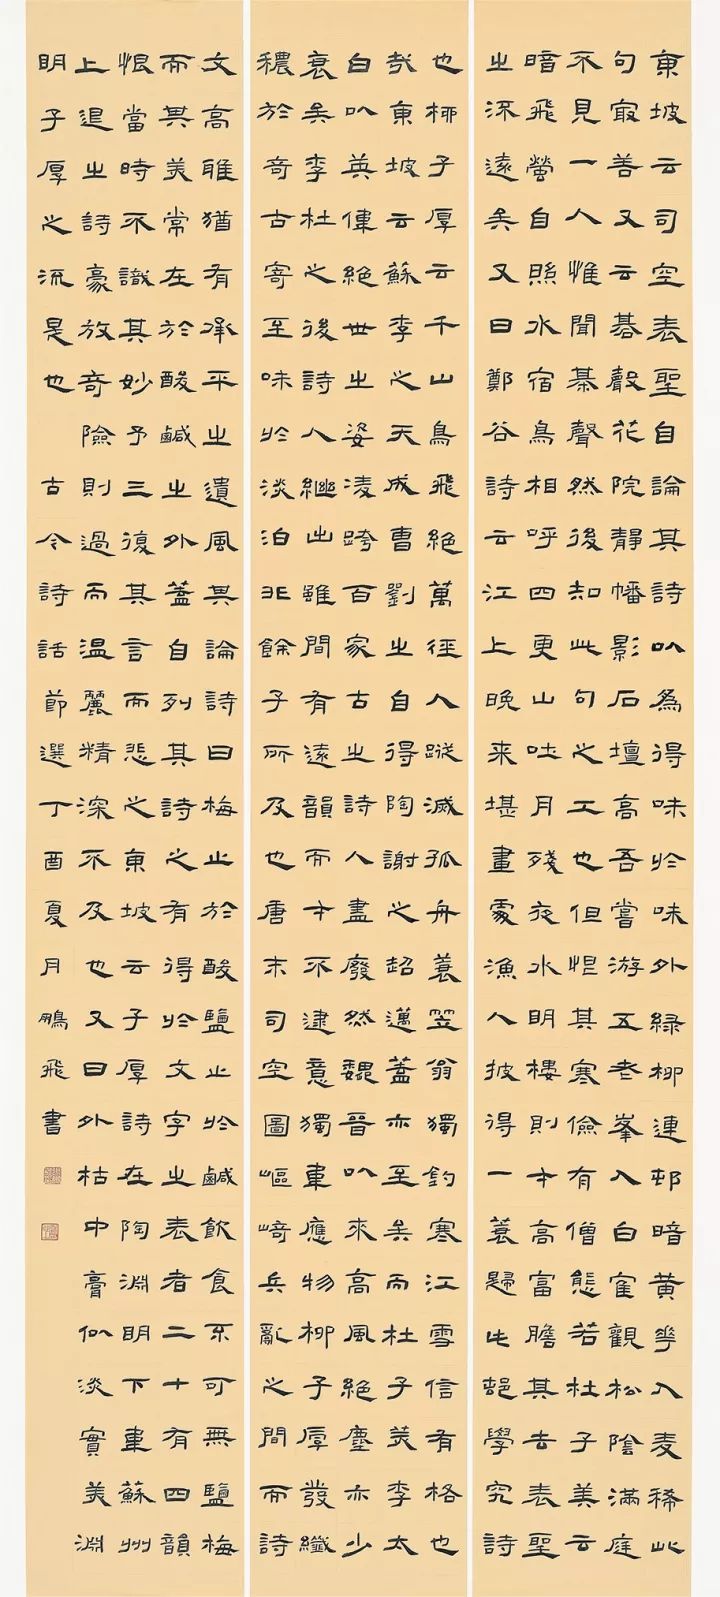 東坡云司空表聖自論其詩以為得味於味外綠柳連邨暗黃華入麦稀此
句最善又云棊聲花院靜幡影石壇高吾嘗游五老峯入白鶴觀松陰滿庭
不見一人惟聞棊聲然後知此句之工也但恨其寒儉有僧態若杜子美云
暗飛螢自照水宿鳥相呼四更山吐月殘夜水明樓則才高富贍其去表聖
之流遠矣又曰鄭谷詩云江上晚来堪畫處漁人披得一蓑歸此邨學究詩
也柳子厚云千山鳥飛絕萬徑人蹤滅孤舟蓑笠翁獨釣寒江雪信有格也
哉東坡云蘇李之天成曹劉之自得陶謝之超邁蓋亦至矣而杜子美李太
白以英偉絕世之姿凌跨百家古之詩人盡廢然魏晉以來高風絕塵亦少
衰矣李杜之後詩人繼出雖間有遠韻而才不逮意獨韋應物柳子厚發纖
穠於奇古寄至味於淡泊非餘子所及也唐末司空圖嶇崎兵亂之間而詩
文高雅猶有承平之遺風其論詩曰梅止於酸鹽止於鹹飲食不可無鹽梅
而其美常在於酸鹹之外蓋自列其詩之有得於文字之表者二十有四韻
恨當時不識其妙予三復其言而悲之東坡云子厚詩在陶淵明下韋蘇州
上退之詩豪放奇險則過而溫麗精深不及也又曰外枯中膏似淡實美淵
明子厚之流是也 古今詩話節選丁酉夏月鵬飛書